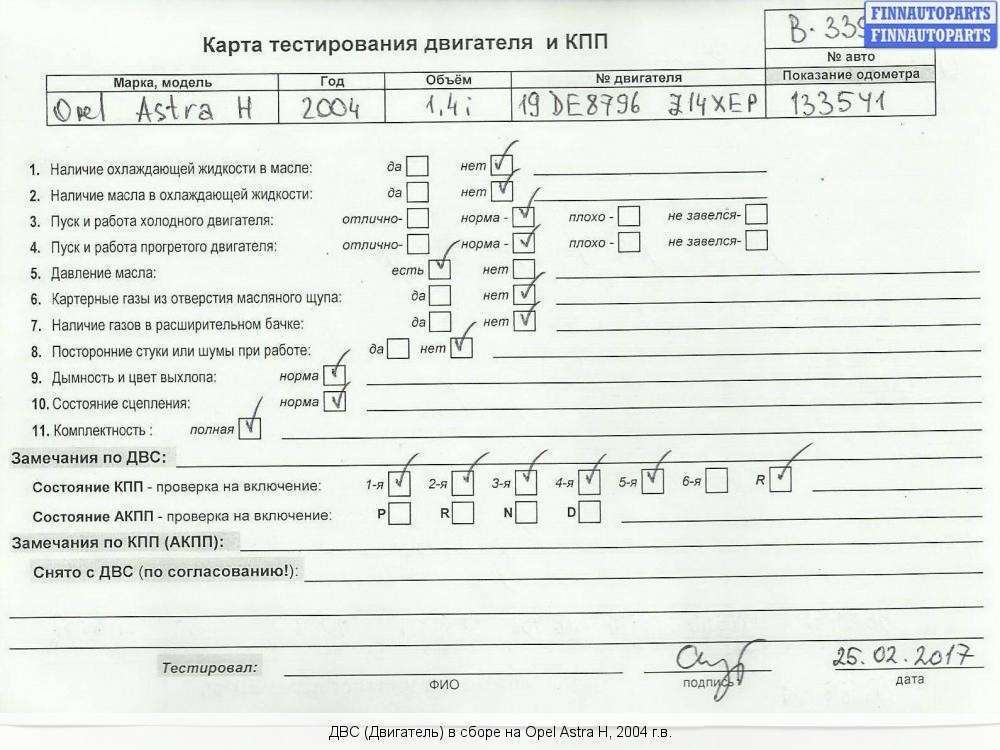 FINNAUTOPARTS
FINNAUTOPARTS
Карта тестирования двигателя и КПП
№ авто
Марка, модель Год Объём № двигателя Показание одометра
Opel Astra H 2004 1,4i 19DE8796 Z14XEP 133541
1. Наличие охлаждающей жидкости в масле: да нет
2. Наличие масла в охлаждающей жидкости: да нет
3. Пуск и работа холодного двигателя: отлично- норма - плохо - не завелся-
4. Пуск и работа прогретого двигателя: отлично- норма - плохо - не завелся-
5. Давление масла: есть нет
6. Картерные газы из отверстия масляного щупа: да нет
7. Наличие газов в расширительном бачке: да нет
8. Посторонние стуки или шумы при работе: да нет
9. Дымность и цвет выхлопа: норма
10. Состояние сцепления: норма
11. Комплектность : полная
Замечания по ДВС:
Состояние КПП - проверка на включение: 1-я 2-я 3-я 4-я 5-я 6-я R
Состояние АКПП - проверка на включение: P R N D
Замечания по КПП (АКПП):
Снято с ДВС (по согласованию!):
Тестировал: 25.02.2017
ФИО подпись дата
ДВС (Двигатель) в сборе на Opel Astra H, 2004 г.в.